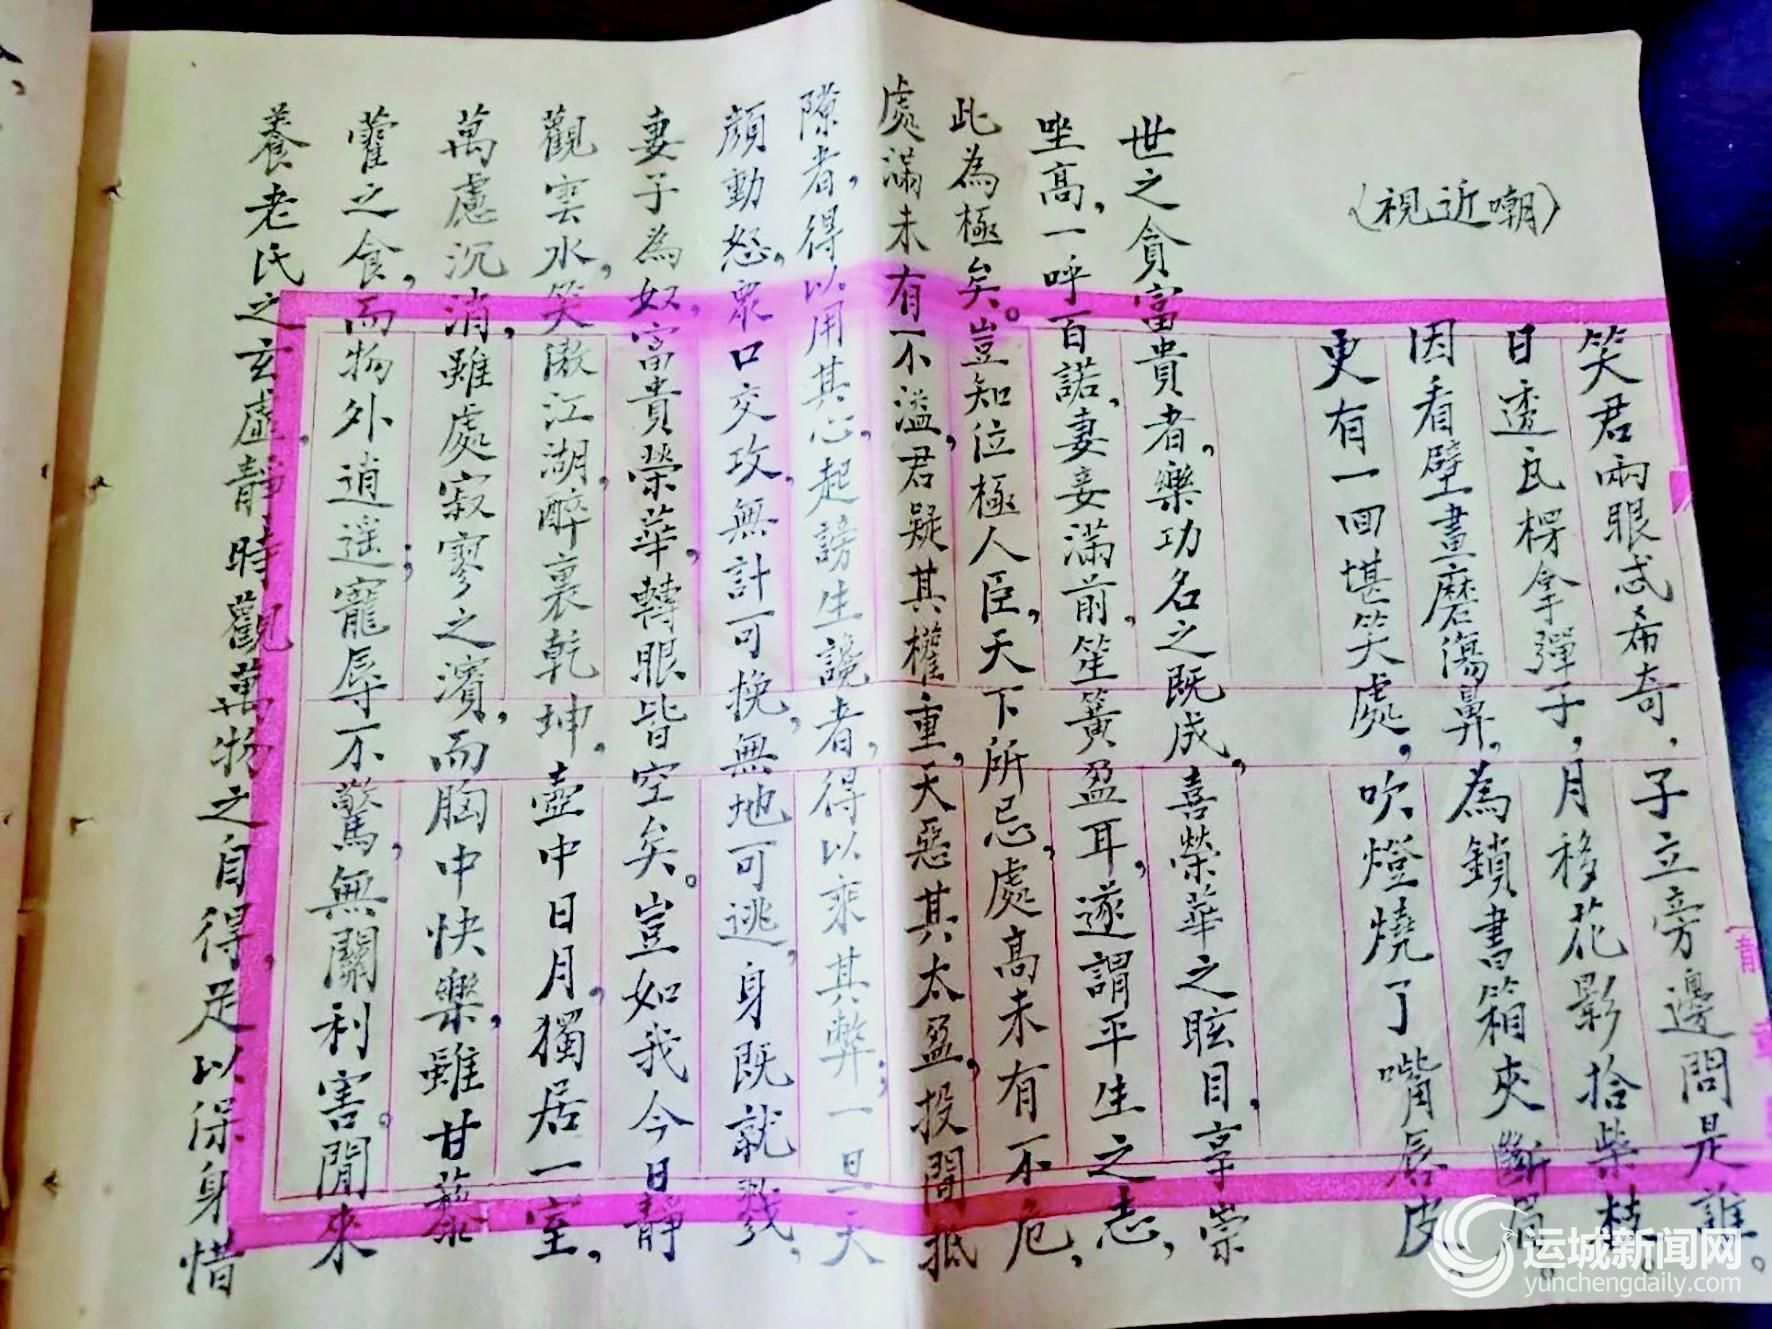 （嘲近視）
笑君兩眼忒希奇，子立旁邊問是誰。
日透瓦楞拿彈子，月移花影拾柴枝。
因看壁畫磨傷鼻，為鎖書箱夾斷眉。
更有一回堪笑處，吹燈燒了嘴唇皮。
世之貪富貴者，樂功名之既成，喜榮華之眩目，享崇
坐高，一呼百諾，妻妾滿前，笙簧盈耳，遂謂平生之志，
此為極矣。豈知位極人臣，天下所忌，處高未有不危，
處滿未有不溢，君疑其權重，天惡其太盈，投間抵
隙者，得以用其心，起謗生讒者，得以乘其弊；一旦天
顏動怒，眾口交攻，無計可挽，無地可逃，身既就戮，
妻子為奴，富貴榮華，轉眼皆空矣。豈如我今日靜
觀雲水，笑傲江湖，醉裏乾坤，壺中日月，獨居一室，
萬慮沉消，雖處寂寥之濱，而胸中快樂，雖甘藜
藿之食，而物外逍遥；寵辱不驚，無關利害。閒來
養老氏之玄虛，靜時觀萬物之自得，足以保身惜
运城新闻网
yunchengdaily.com